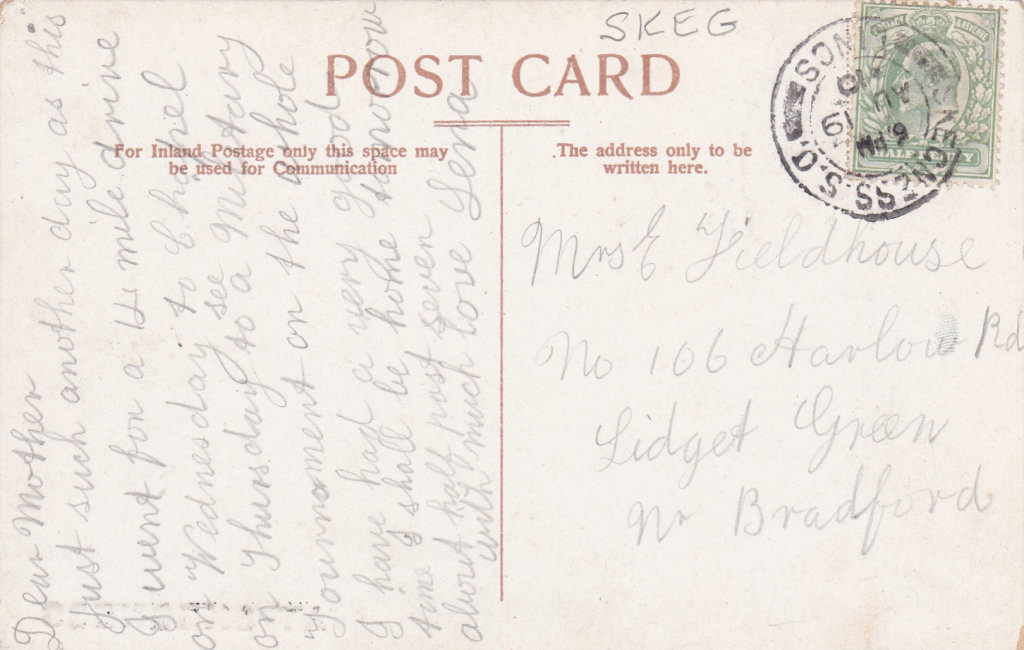 SKEG
POST CARD
For Inland Postage only this space may
be used for Communication
The address only to be
written here.
HALF PENNY
6.PM
AU 19
10
S.O.
Dear Mother
Just such another day as this
I went for a 4 mile drive
on Wednesday to Chapel
on Thursday to see a Military
Tournament on the whole
I have had a very good
time I shall be home tomorrow
about half past seven
with much love Lena
Mrs E Fieldhouse
No 106 Harlow Rd
Lidget Green
Nr Bradford